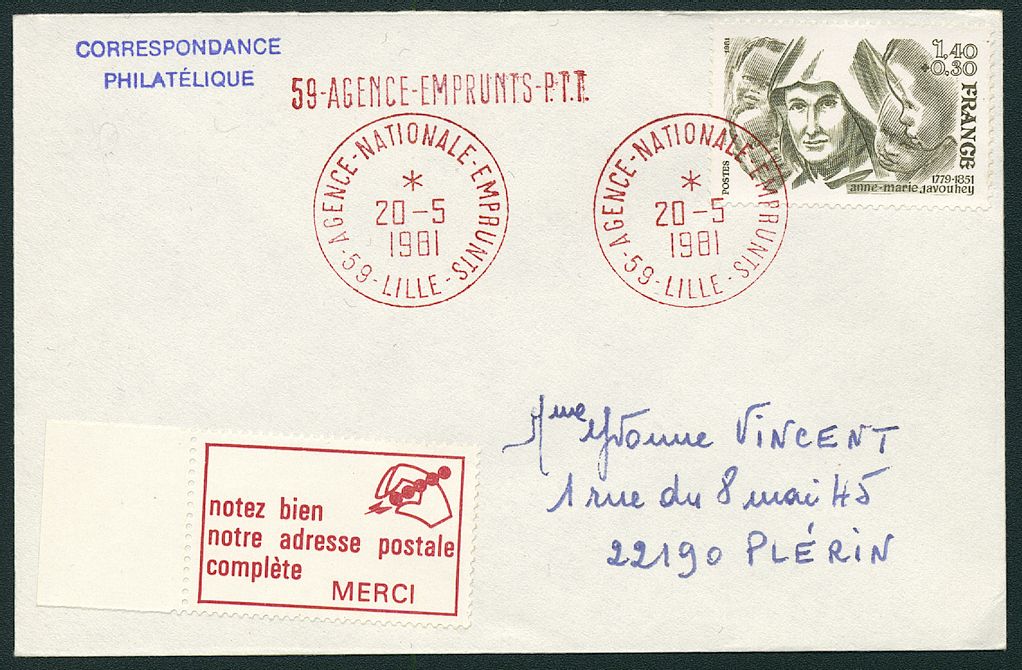 CORRESPONDANCE
PHILATÉLIQUE
59-AGENCE-EMPRUNTS-P.T.T.
AGENCE-NATIONALE-EMPRUNTS-
*
20-5
1981
59-LILLE-
AGENCE-NATIONALE-EMPRUNTS-
*
20-5
1981
59-LILLE-
1981
1,40
+0,30
FRANCE
POSTES
1779-1851
anne-marie javouhey
Mme Yvonne VINCENT
1 rue du 8 mai 45
22190 PLÉRIN
notez bien
notre adresse postale
complète
MERCI